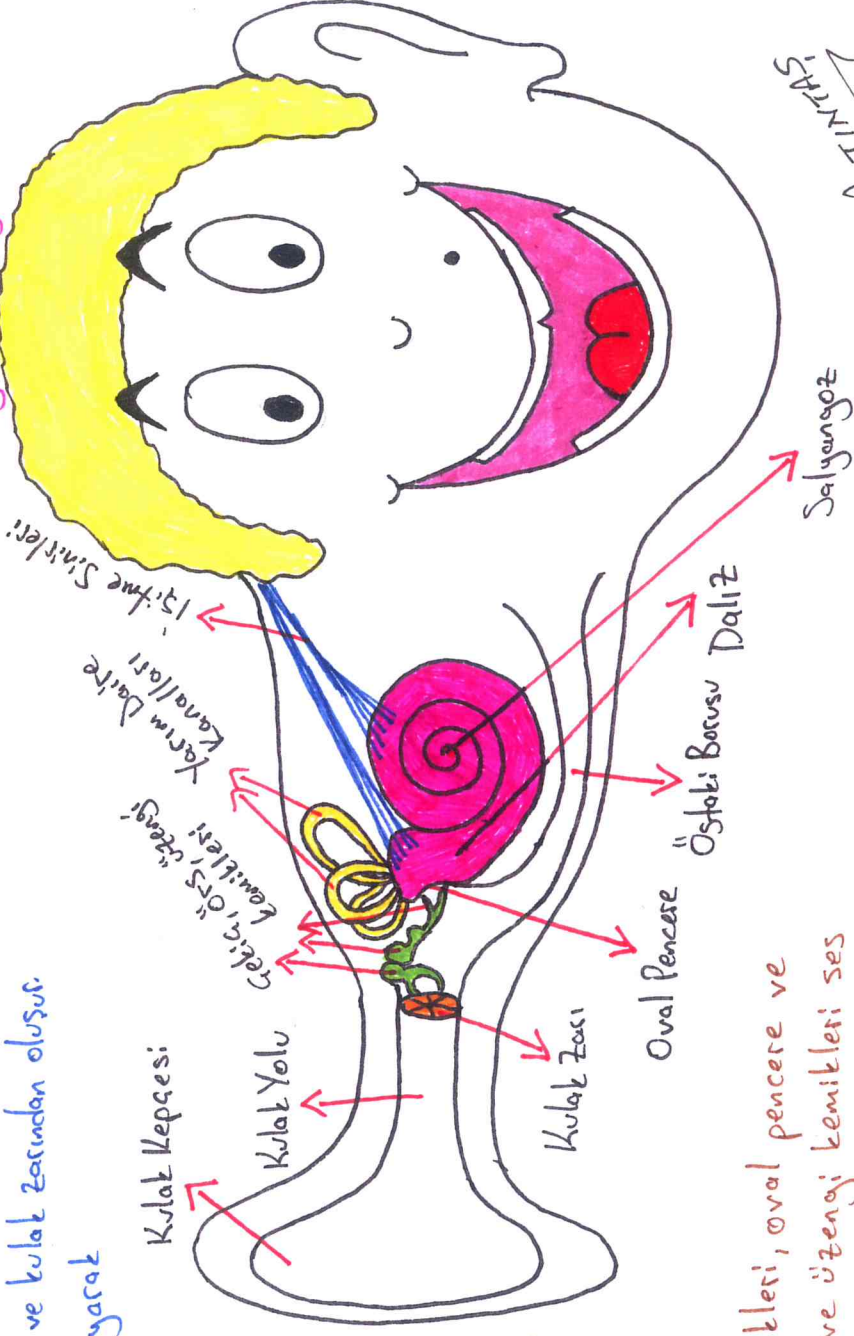 ve kulak zarından oluşur.
yarak
Kulak Kepçesi
Kulak Yolu
Çekiç, örs, üzengi
kemikleri
Yarım Daire
Kanalları
İşitme Sinirleri
Kulak Zarı
Oval Pencere
Östaki Borusu
Daliz
Salyangoz
kleri, oval pencere ve
ve üzengi kemikleri ses